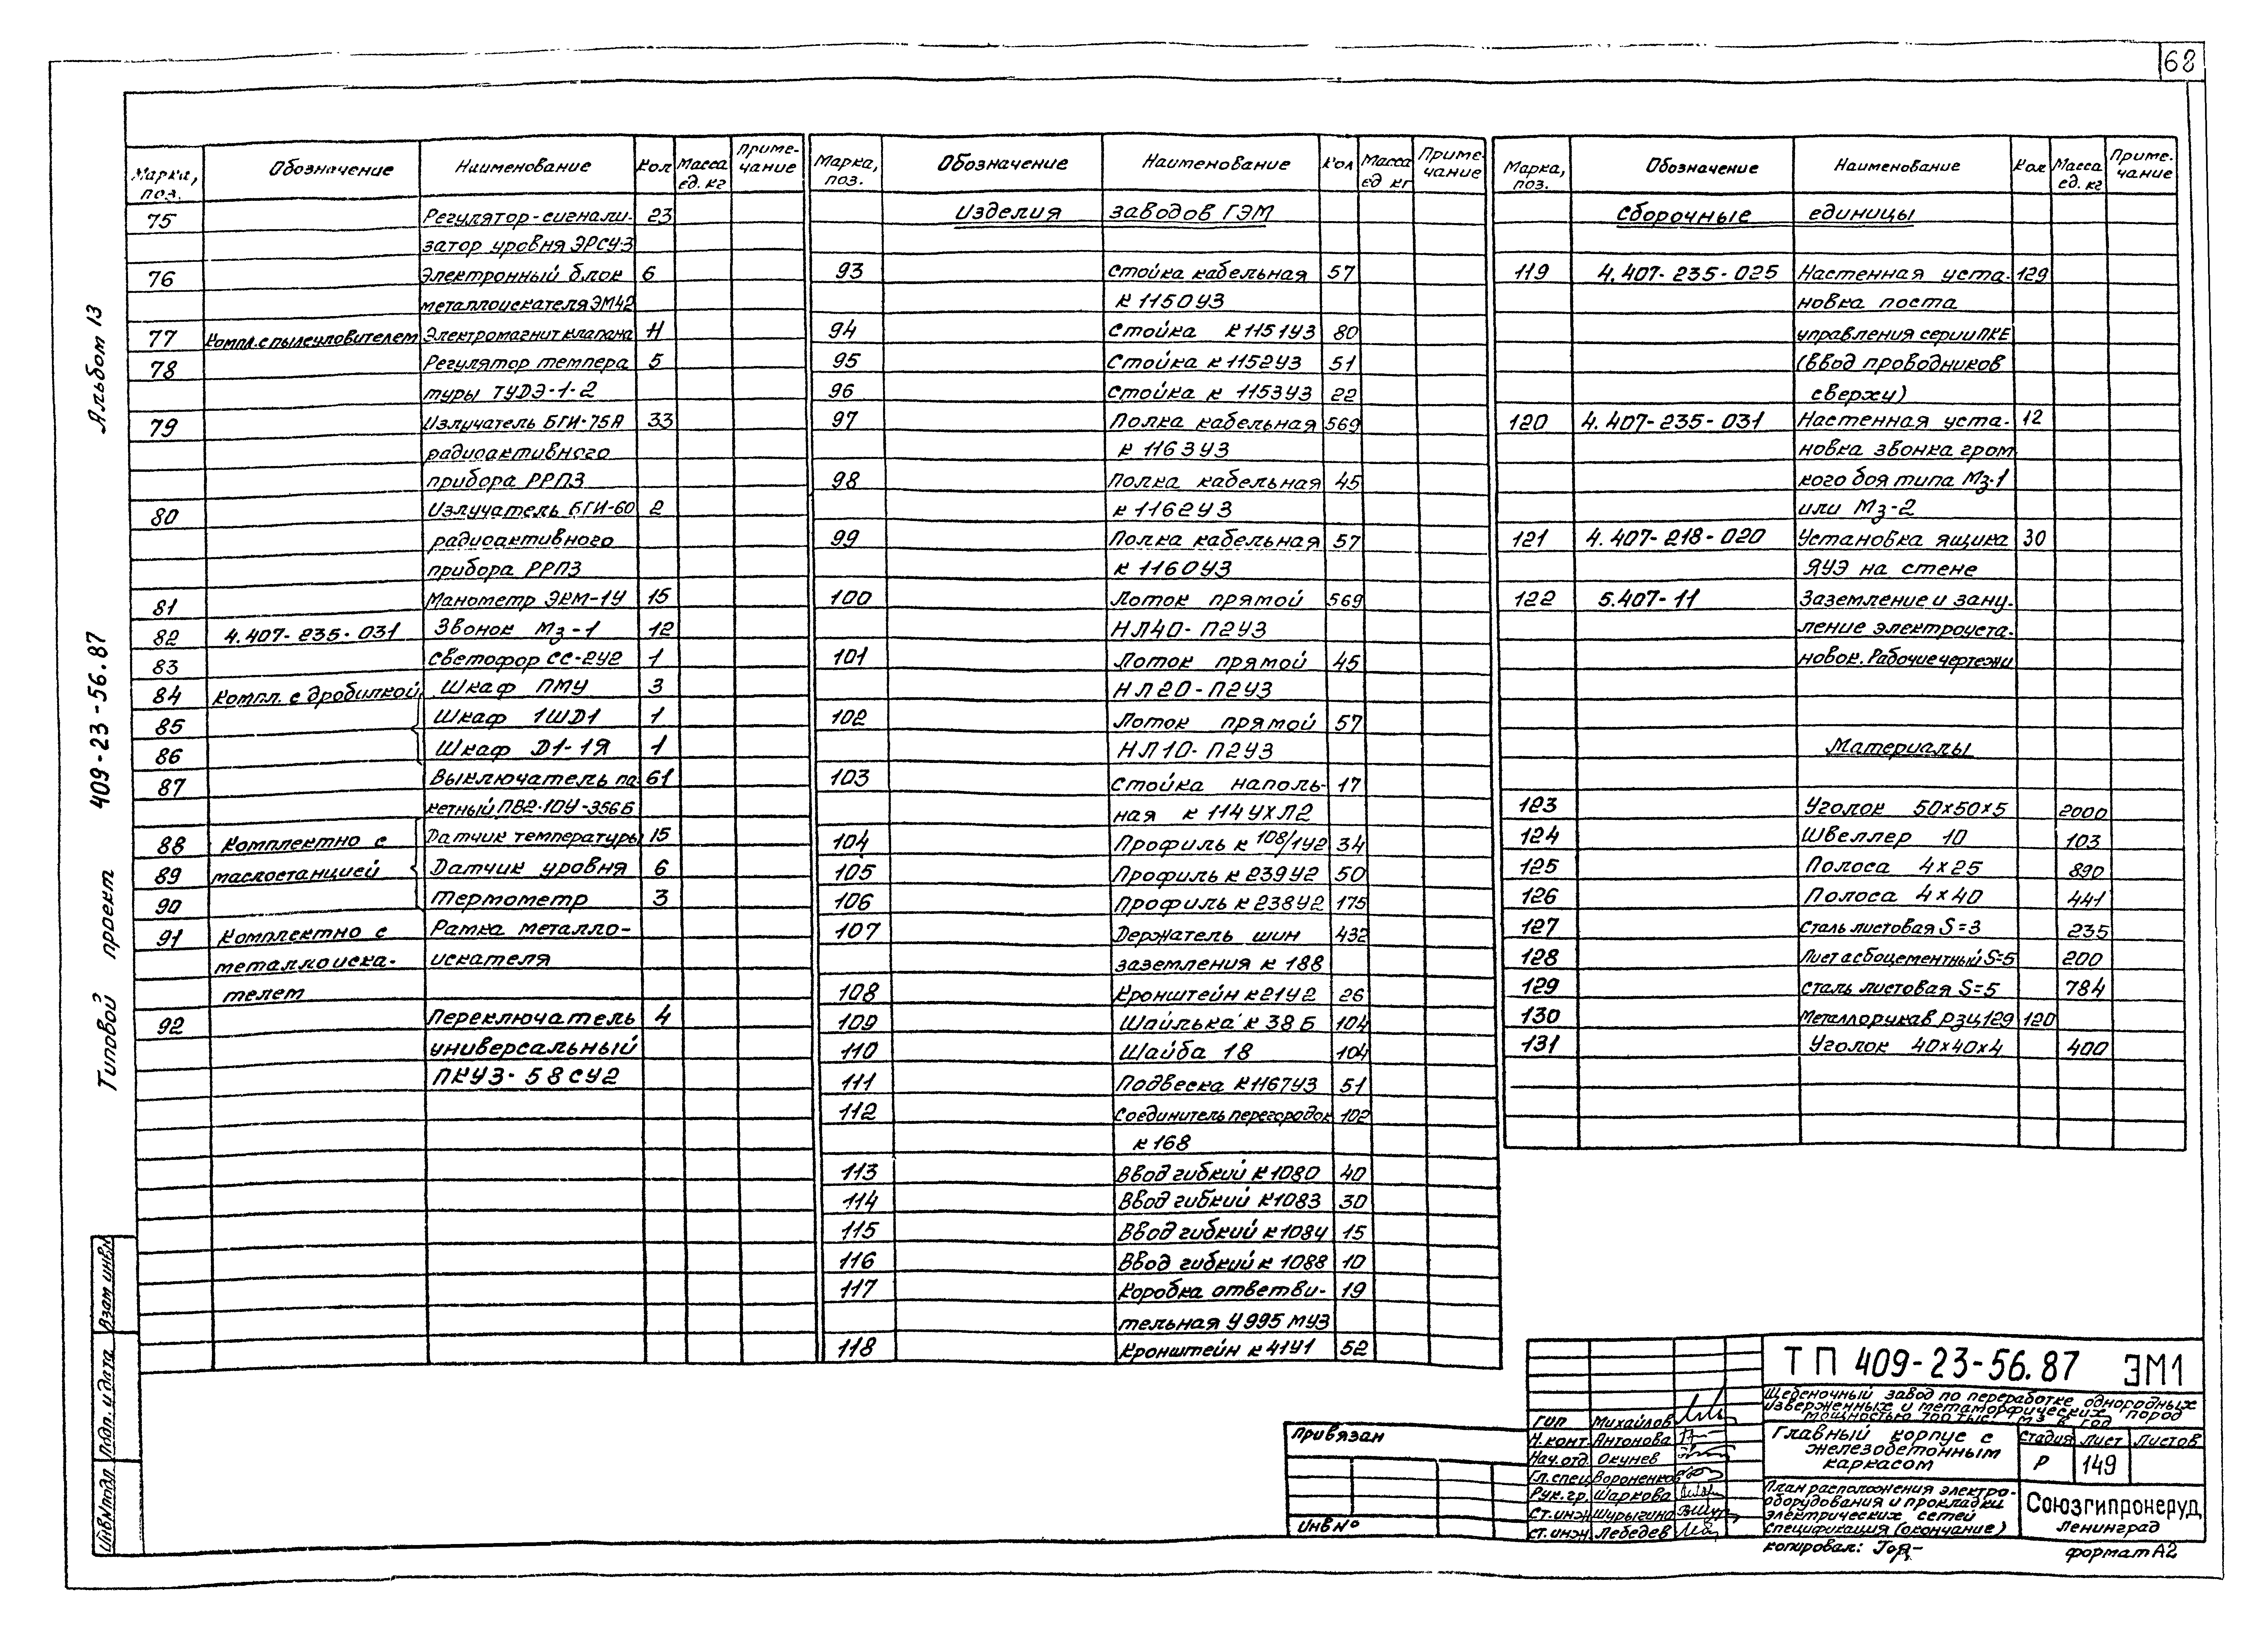 68
Альбом 13
Типовой проект 409-23-56.87
Взам инв.N
Подп. и дата
Инв.N подл
Марка, поз. Обозначение Наименование Кол Масса ед. кг Приме-чание
75 Регулятор-сигнали- 23
затор уровня ЭРСУЗ
76 Электронный блок 6
металлоискателя ЭМ42
77 Компл. с пылеуловителем Электромагнит клапана 11
78 Регулятор темпера 5
туры ТУДЭ-1-2
79 Излучатель БГИ-75А 33
радиоактивного
прибора РРПЗ
80 Излучатель БГИ-60 2
радиоактивного
прибора РРПЗ
81 Манометр ЭКМ-1У 15
82 4.407-235-031 Звонок Мз-1 12
83 Светофор СС-2У2 1
84 Компл. с дробилкой Шкаф ПМУ 3
85 Шкаф 1ШД1 1
86 Шкаф Д1-1Я 1
87 Выключатель па 61
кетный ПВ2-10У-356Б
88 Комплектно с Датчик температуры 15
89 маслостанцией Датчик уровня 6
90 Термометр 3
91 Комплектно с Рамка металло-
металлоиска- искателя
телем
92 Переключатель 4
универсальный
ПКУЗ-58СУ2
Марка, поз. Обозначение Наименование Кол Масса ед кг Приме-чание
Изделия заводов ГЭМ
93 Стойка кабельная 57
к 1150У3
94 Стойка к 1151У3 80
95 Стойка к 1152У3 51
96 Стойка к 1153У3 22
97 Полка кабельная 569
к 1163У3
98 Полка кабельная 45
к 1162У3
99 Полка кабельная 57
к 1160У3
100 Лоток прямой 569
НЛ40-П2У3
101 Лоток прямой 45
НЛ20-П2У3
102 Лоток прямой 57
НЛ10-П2У3
103 Стойка наполь- 17
ная к 114УХЛ2
104 Профиль к 108/1У2 34
105 Профиль к 239У2 50
106 Профиль к 238У2 175
107 Держатель шин 432
заземления к 188
108 Кронштейн к21У2 26
109 Шайлька к 38 Б 104
110 Шайба 18 104
111 Подвеска к1167У3 51
112 Соединитель перегородок 102
к 168
113 Ввод гибкий к 1080 40
114 Ввод гибкий к1083 30
115 Ввод гибкий к 1084 15
116 Ввод гибкий к 1088 10
117 Коробка ответви- 19
тельная У 995 МУ3
118 Кронштейн к 41У1 52
Марка, поз. Обозначение Наименование Кол Масса ед. кг Приме-чание
Сборочные единицы
119 4.407-235-025 Настенная уста- 129
новка поста
управления серии ПКЕ
(ввод проводников
сверху)
120 4.407-235-031 Настенная уста- 12
новка звонка гром
кого боя типа Мз-1
или Мз-2
121 4.407-218-020 Установка ящика 30
ЯУЭ на стене
122 5.407-11 Заземление и зану-
ление электроуста-
новок. Рабочие чертежи
Материалы
123 Уголок 50х50х5 2000
124 Швеллер 10 103
125 Полоса 4х25 890
126 Полоса 4х40 441
127 Сталь листовая S=3 235
128 Лист асбоцементный S=5 200
129 Сталь листовая S=5 784
130 Металлорукав РЗЦ,129 120
131 Уголок 40х40х4 400
Привязан
Инв N°
ГИП Михайлов
Н.конт. Антонова
Нач.отд. Окунев
Гл.спец Вороненков
Рук.гр. Шаркова
Ст.инж Шурыгина
Ст.инж Лебедев
ТП 409-23-56.87 ЭМ1
Щебеночный завод по переработке однородных
изверженных и метаморфических пород
мощностью 700 тыс. м3 в год
Главный корпус с
железобетонным
каркасом
Стадия Лист Листов
Р 149
План расположения электро-
оборудования и прокладки
электрических сетей
Спецификация (окончание)
Союзгипронеруд
Ленинград
копировал:
формат А2